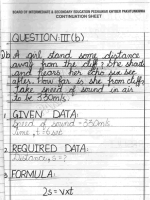 BOARD OF INTERMEDIATE & SECONDARY EDUCATION PESHAWAR KHYBER PAKHTUNKHWA
CONTINUATION SHEET
QUESTION-III (b)
A girl stand some distance
away from the cliff? She shouts
and hears her echo six sec
after. How far is she from cliff,
take speed of sound in air
to be 330m/s.
1. GIVEN DATA:
Speed of sound = 330m/s
Time, t = 6 sec
2. REQUIRED DATA:
Distance, s = ?
3. FORMULA:
2s = vxt